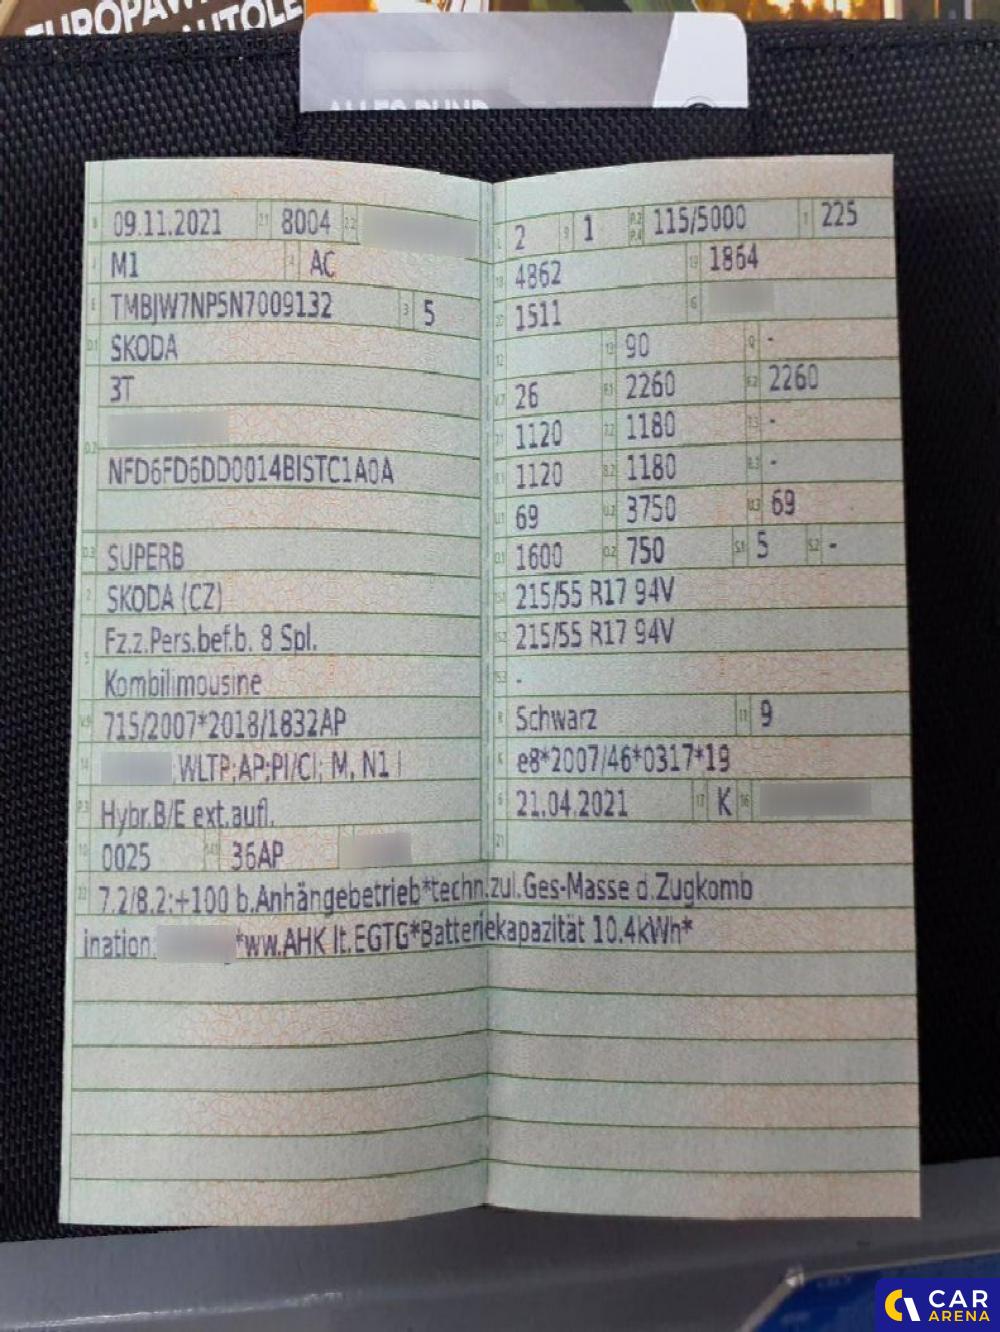 EUROPAW
AUTOLE
ALLES RUND
B 09.11.2021 2.1 8004 2.2
J M1 4 AC
E TMBJW7NP5N7009132 3 5
D.1 SKODA
3T
D.2
NFD6FD6DD0014BISTC1A0A
D.3 SUPERB
2 SKODA (CZ)
5 Fz.z.Pers.bef.b. 8 Spl.
Kombilimousine
V.9 715/2007*2018/1832AP
14 ;WLTP;AP;PI/CI; M, N1 I
P.3 Hybr.B/E ext.aufl.
10 0025 14.1 36AP
L 2 9 1 P.2 P.4 115/5000 T 225
18 4862 19 1864
20 1511 G
12 13 90 Q -
V.7 26 F.1 2260 F.2 2260
7.1 1120 7.2 1180 7.3 -
8.1 1120 8.2 1180 8.3 -
U.1 69 U.2 3750 U.3 69
O.1 1600 O.2 750 S.1 5 S.2 -
15.1 215/55 R17 94V
15.2 215/55 R17 94V
15.3 -
R Schwarz 11 9
K e8*2007/46*0317*19
6 21.04.2021 17 K 16
21
22 7.2/8.2:+100 b.Anhängebetrieb*techn.zul.Ges-Masse d.Zugkomb
ination: *ww.AHK lt.EGTG*Batteriekapazität 10.4kWh*
CAR
ARENA